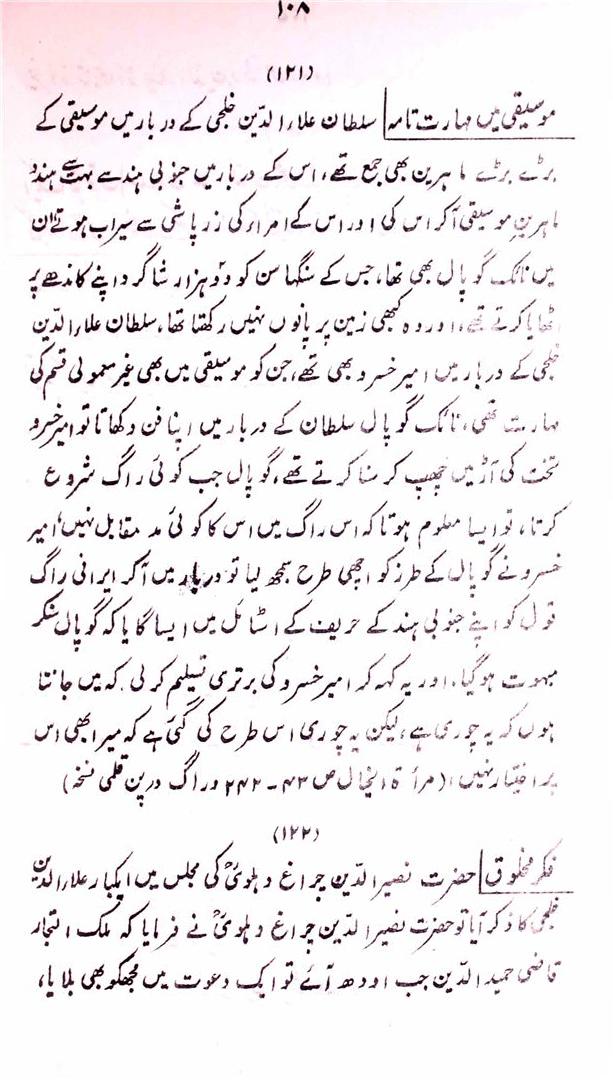 ۱۰۸
(۱۲۱)
موسیقی میں مہارت تامہ سلطان علاء الدّین خلجی کے دربار میں موسیقی کے
بڑے بڑے ماہرین بھی جمع تھے، اس کے دربار میں جنوبی ہند سے بہت سے ہندو
ماہرینِ موسیقی آکر اس کی اور اس کے امراء کی زر پاشی سے سیراب ہوتے ان
میں نائک گوپال بھی تھا، جس کے سنگھاسن کو دو ہزار شاگرد اپنے کاندھے پر
اٹھایا کرتے تھے، اور وہ کبھی زمین پر پانوں نہیں رکھتا تھا، سلطان علاء الدّین
خلجی کے دربار میں امیر خسرو بھی تھے، جن کو موسیقی میں بھی غیر معمولی قسم کی
مہارت تھی، نائک گوپال سلطان کے دربار میں اپنا فن دکھاتا تو امیر خسرو
تخت کی آڑ میں چھپ کر سنا کرتے تھے، گوپال جب کوئی راگ شروع
کرتا، تو ایسا معلوم ہوتا کہ اس راگ میں اس کا کوئی مد مقابل نہیں، امیر
خسرو نے گوپال کے طرز کو اچھی طرح سمجھ لیا تو دربار میں آکر ایرانی راگ
قول کو اپنے جنوبی ہند کے حریف کے اسٹائل میں ایسا گایا کہ گوپال سنکر
مبہوت ہوگیا، اور یہ کہہ کر امیر خسرو کی برتری تسلیم کرلی کہ میں جانتا
ہوں کہ یہ چوری ہے، لیکن یہ چوری اس طرح کی گئی ہے کہ میرا بھی اس
پر اختیار نہیں، (مرأۃ الخیال ص ۴۳ - ۲۴۲ و راگ درپن قلمی نسخہ)
(۱۲۲)
فکرِ مخلوق حضرت نصیر الدّین چراغ دہلویؒ کی مجلس میں ایکبار علاء الدین
خلجی کا ذکر آیا تو حضرت نصیر الدّین چراغ دہلویؒ نے فرمایا کہ ملک التجار
قاضی حمید الدّین جب اودھ آئے تو ایک دعوت میں مجھکو بھی بلایا،